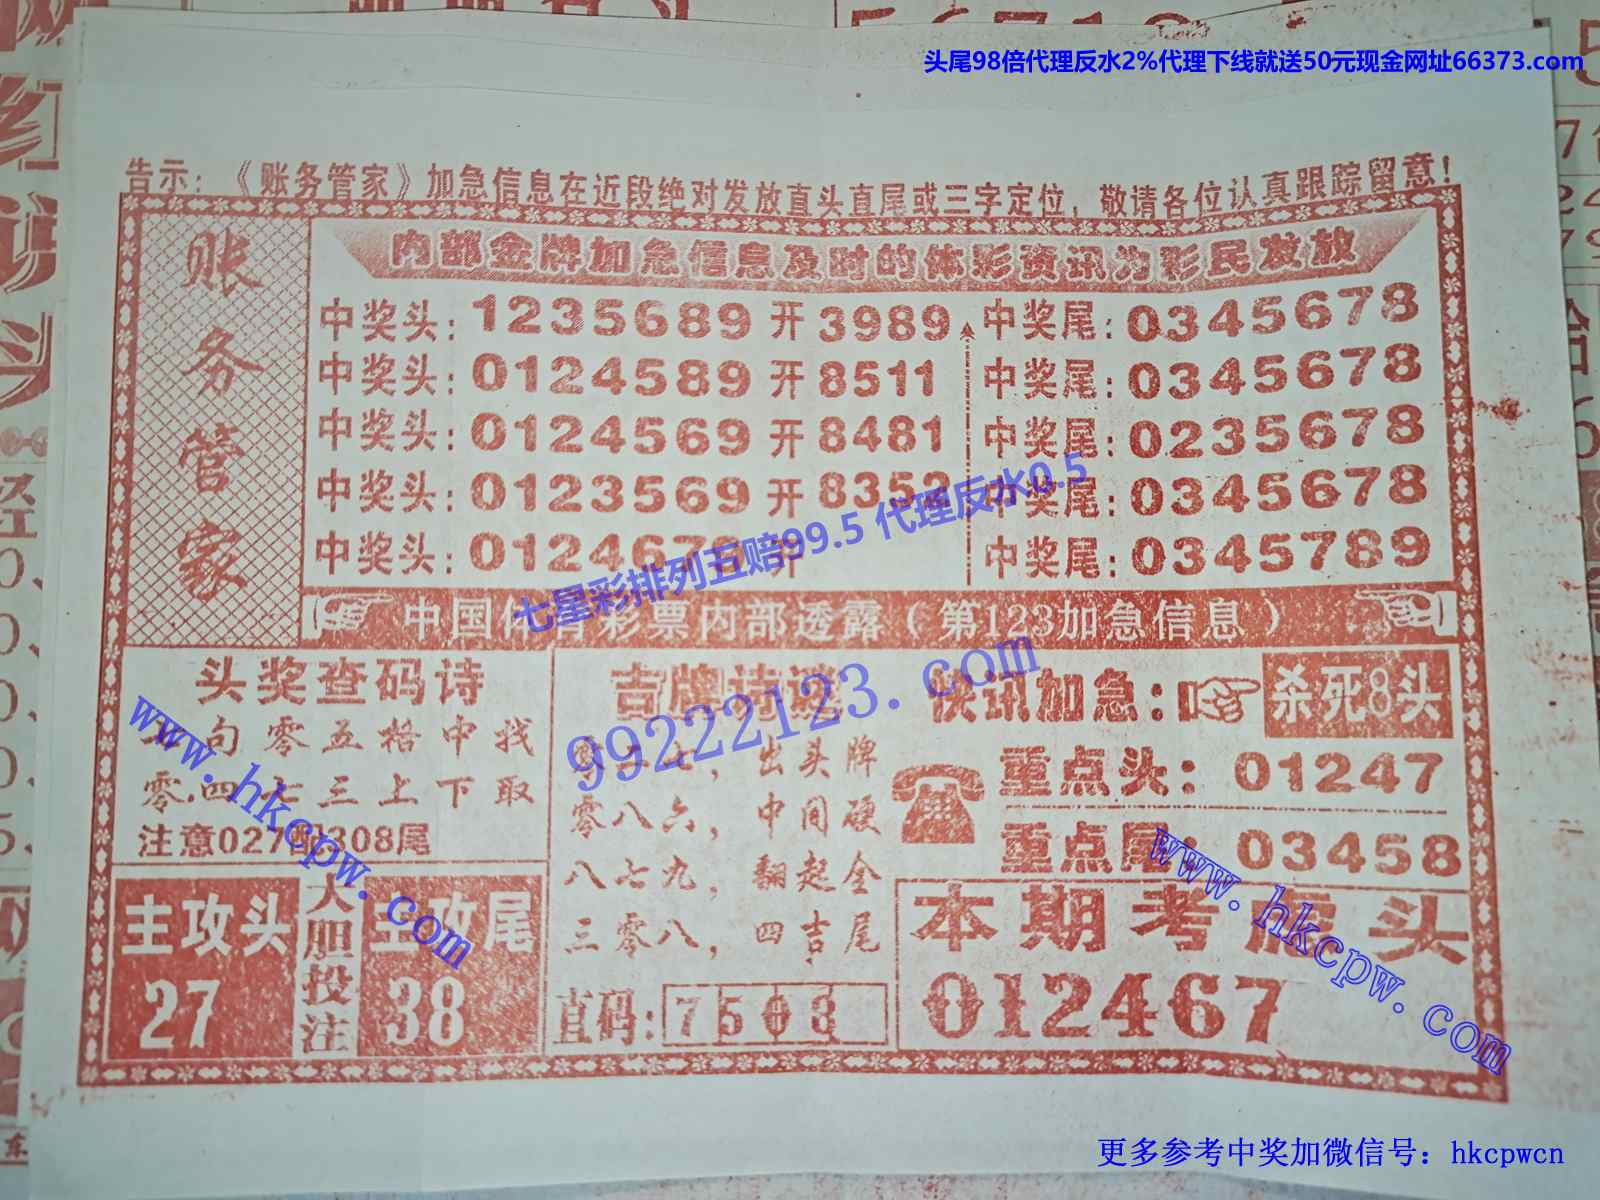 头尾98倍代理反水2%代理下线就送50元现金网址66373.com
告示：《账务管家》加急信息在近段绝对发放直头直尾或三字定位，敬请各位认真跟踪留意！
账务管家
内部金牌加急信息及时的体彩资讯为彩民发放
中奖头：1235689 开 3989 中奖尾：0345678
中奖头：0124589 开 8511 中奖尾：0345678
中奖头：0124569 开 8481 中奖尾：0235678
中奖头：0123569 开 8352 中奖尾：0345678
中奖头：012467 开 中奖尾：0345789
七星彩排列五赔99.5 代理反水0.5
中国体育彩票内部透露（第123加急信息）
头奖查码诗
句零五格中找
零四七三上下取
注意027配308尾
主攻头
27
大胆投注
主攻尾
38
吉牌诗谜
零二七，出头牌
零八六，中间硬
八七九，翻起全
三零八，四吉尾
直码：7508
快讯加急：杀死8头
重点头：01247
重点尾：03458
本期考虑头
012467
99222123.com
www.hkcpw.com
www.hkcpw.com
更多参考中奖加微信号：hkcpwcn